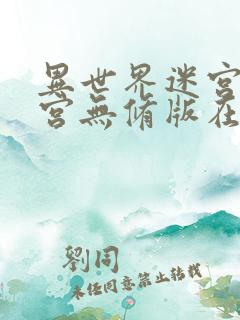 異世界迷宮
宮無脩版在
劉同
未经同意禁止转载